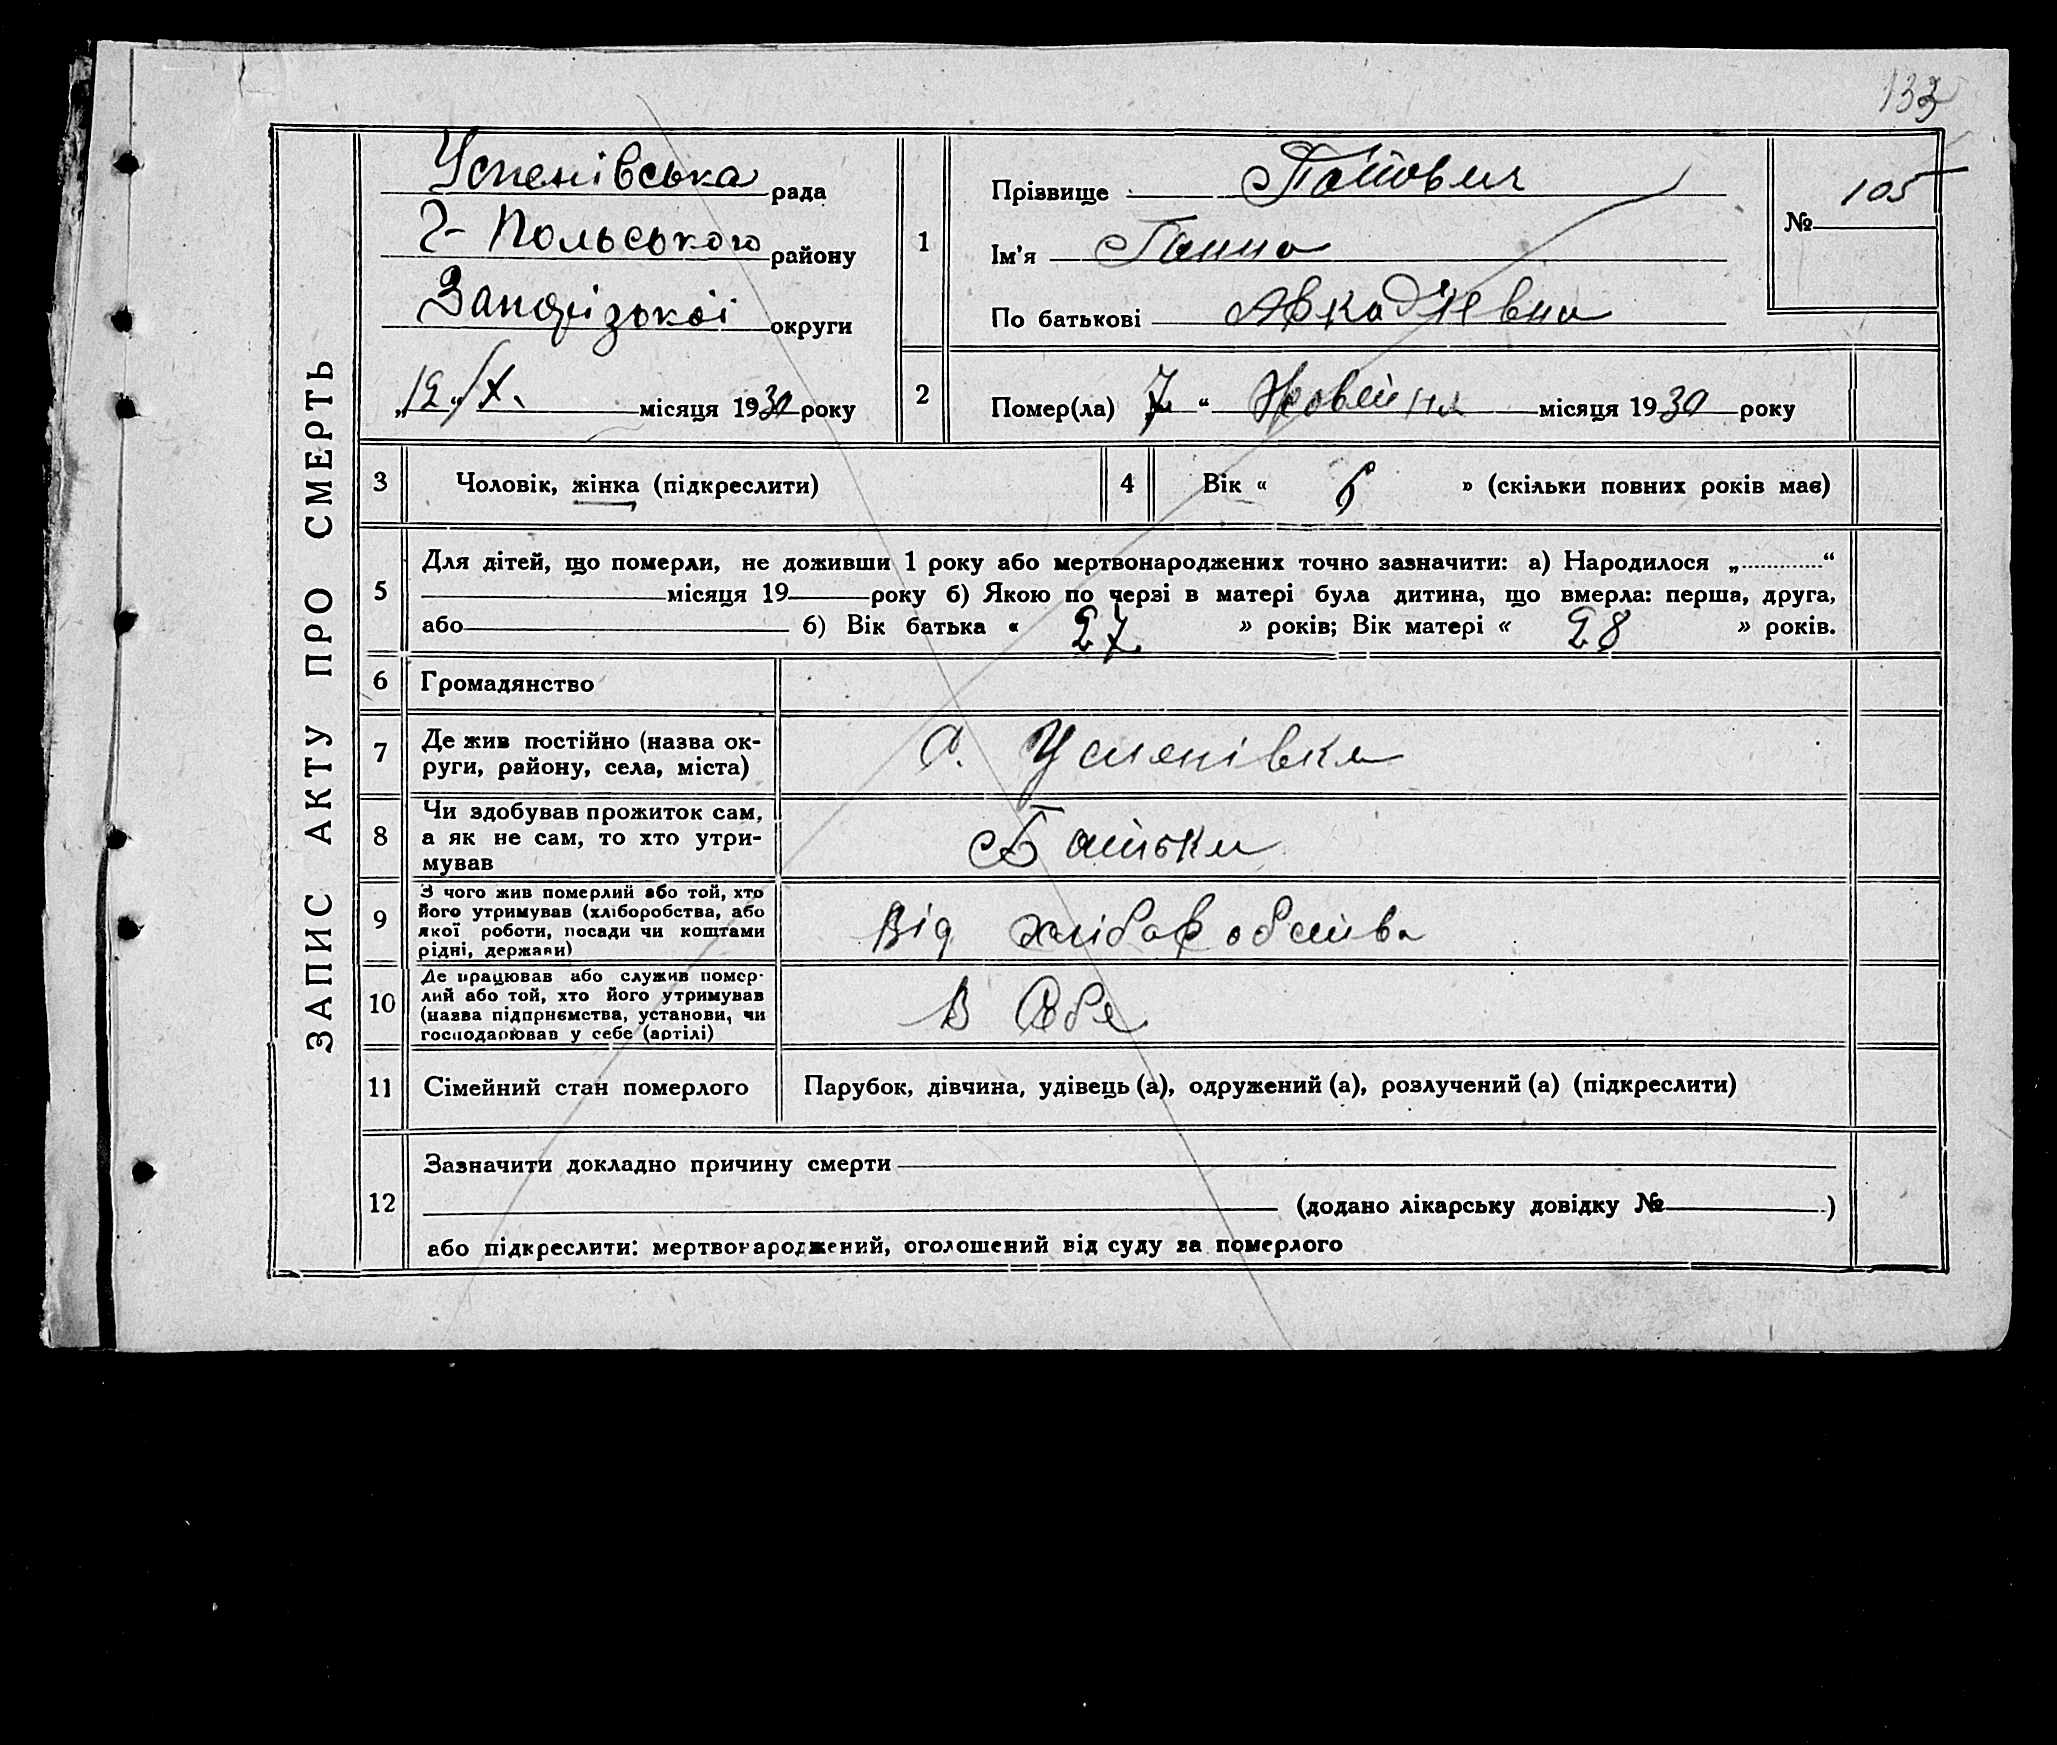 133
ЗАПИС АКТУ ПРО СМЕРТЬ
Успенівська рада
Г-Польського району
Запорізької округи
„12“ /X. місяця 1930 року
1
Прізвище
Ім'я Ганна
По батькові Аркадіевна
№ 105
2
Помер(ла) 7 “ Жовтня місяця 1930 року
3 Чоловік, жінка (підкреслити)
4 Вік « 6 » (скільки повних років має)
5
Для дітей, що померли, не доживши 1 року або мертвонароджених точно зазначити: а) Народилося „ “
місяця 19 року б) Якою по черзі в матері була дитина, що вмерла: перша, друга,
або б) Вік батька « 27 » років; Вік матері « 28 » років.
6 Громадянство
7 Де жив постійно (назва ок-
руги, району, села, міста)
с. Успенівка
8 Чи здобував прожиток сам,
а як не сам, то хто утри-
мував
Батьки
9 З чого жив померлий або той, хто
його утримував (хліборобства, або
якої роботи, посади чи коштами
рідні, держави)
Від хліборобства
10 Де працював або служив помер-
лий або той, хто його утримував
(назва підприємства, установи, чи
господарював у себе (артілі)
В Себе
11 Сімейний стан померлого
Парубок, дівчина, удівець (а), одружений (а), розлучений (а) (підкреслити)
12
Зазначити докладно причину смерти
(додано лікарську довідку № )
або підкреслити: мертвонароджений, оголошений від суду за померлого